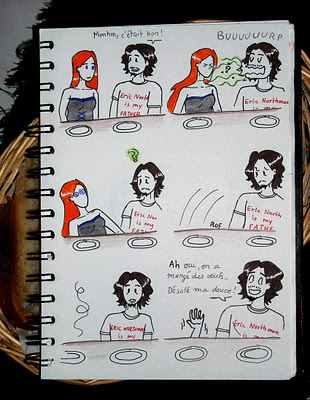 Mmhm, c'était bon!
Eric North
is my
FATHER
BUUUUUURP
Eric Northman
is my
Eric Nor
is my
FATH
Eric North
is my
FATHE
Pof
ERIC NORTHM
is my
Ah oui, on a
mangé des oeufs..
DÉSOLÉ ma douce!
Eric Northm
is m